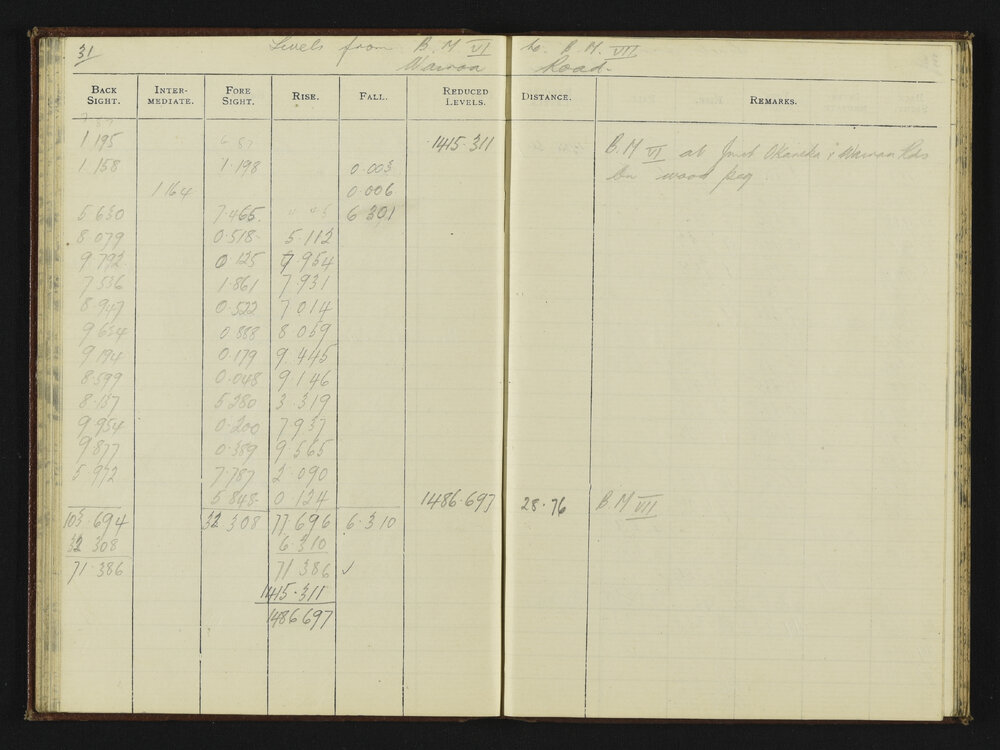 31 Levels from B. M VI to B. M. VII
Road.
BACK SIGHT. INTER-MEDIATE. FORE SIGHT. RISE. FALL. REDUCED LEVELS. DISTANCE. REMARKS.
1 195 1415.311 B. M VI at Junct & Rds
1.158 1.198 0.003 On wood peg
1 164 0.006
5 630 7.465 6 301
8.079 0.518 5.112
9.792 0.125 7.954
7.536 1.861 7.931
8.947 0.522 7 014
9.634 0.888 8.059
9.194 0.179 9.445
8.599 0.048 9 146
8.137 5 280 3.319
9.954 0.200 7 937
9.877 0.389 9 565
5.972 7.787 2.090
5 848 0 124 1486.697 28.76 B. M VII
103 694 32 308 77 696 6.310
32 308 6.310
71.386 71 386 ✓
1415.311
1486697